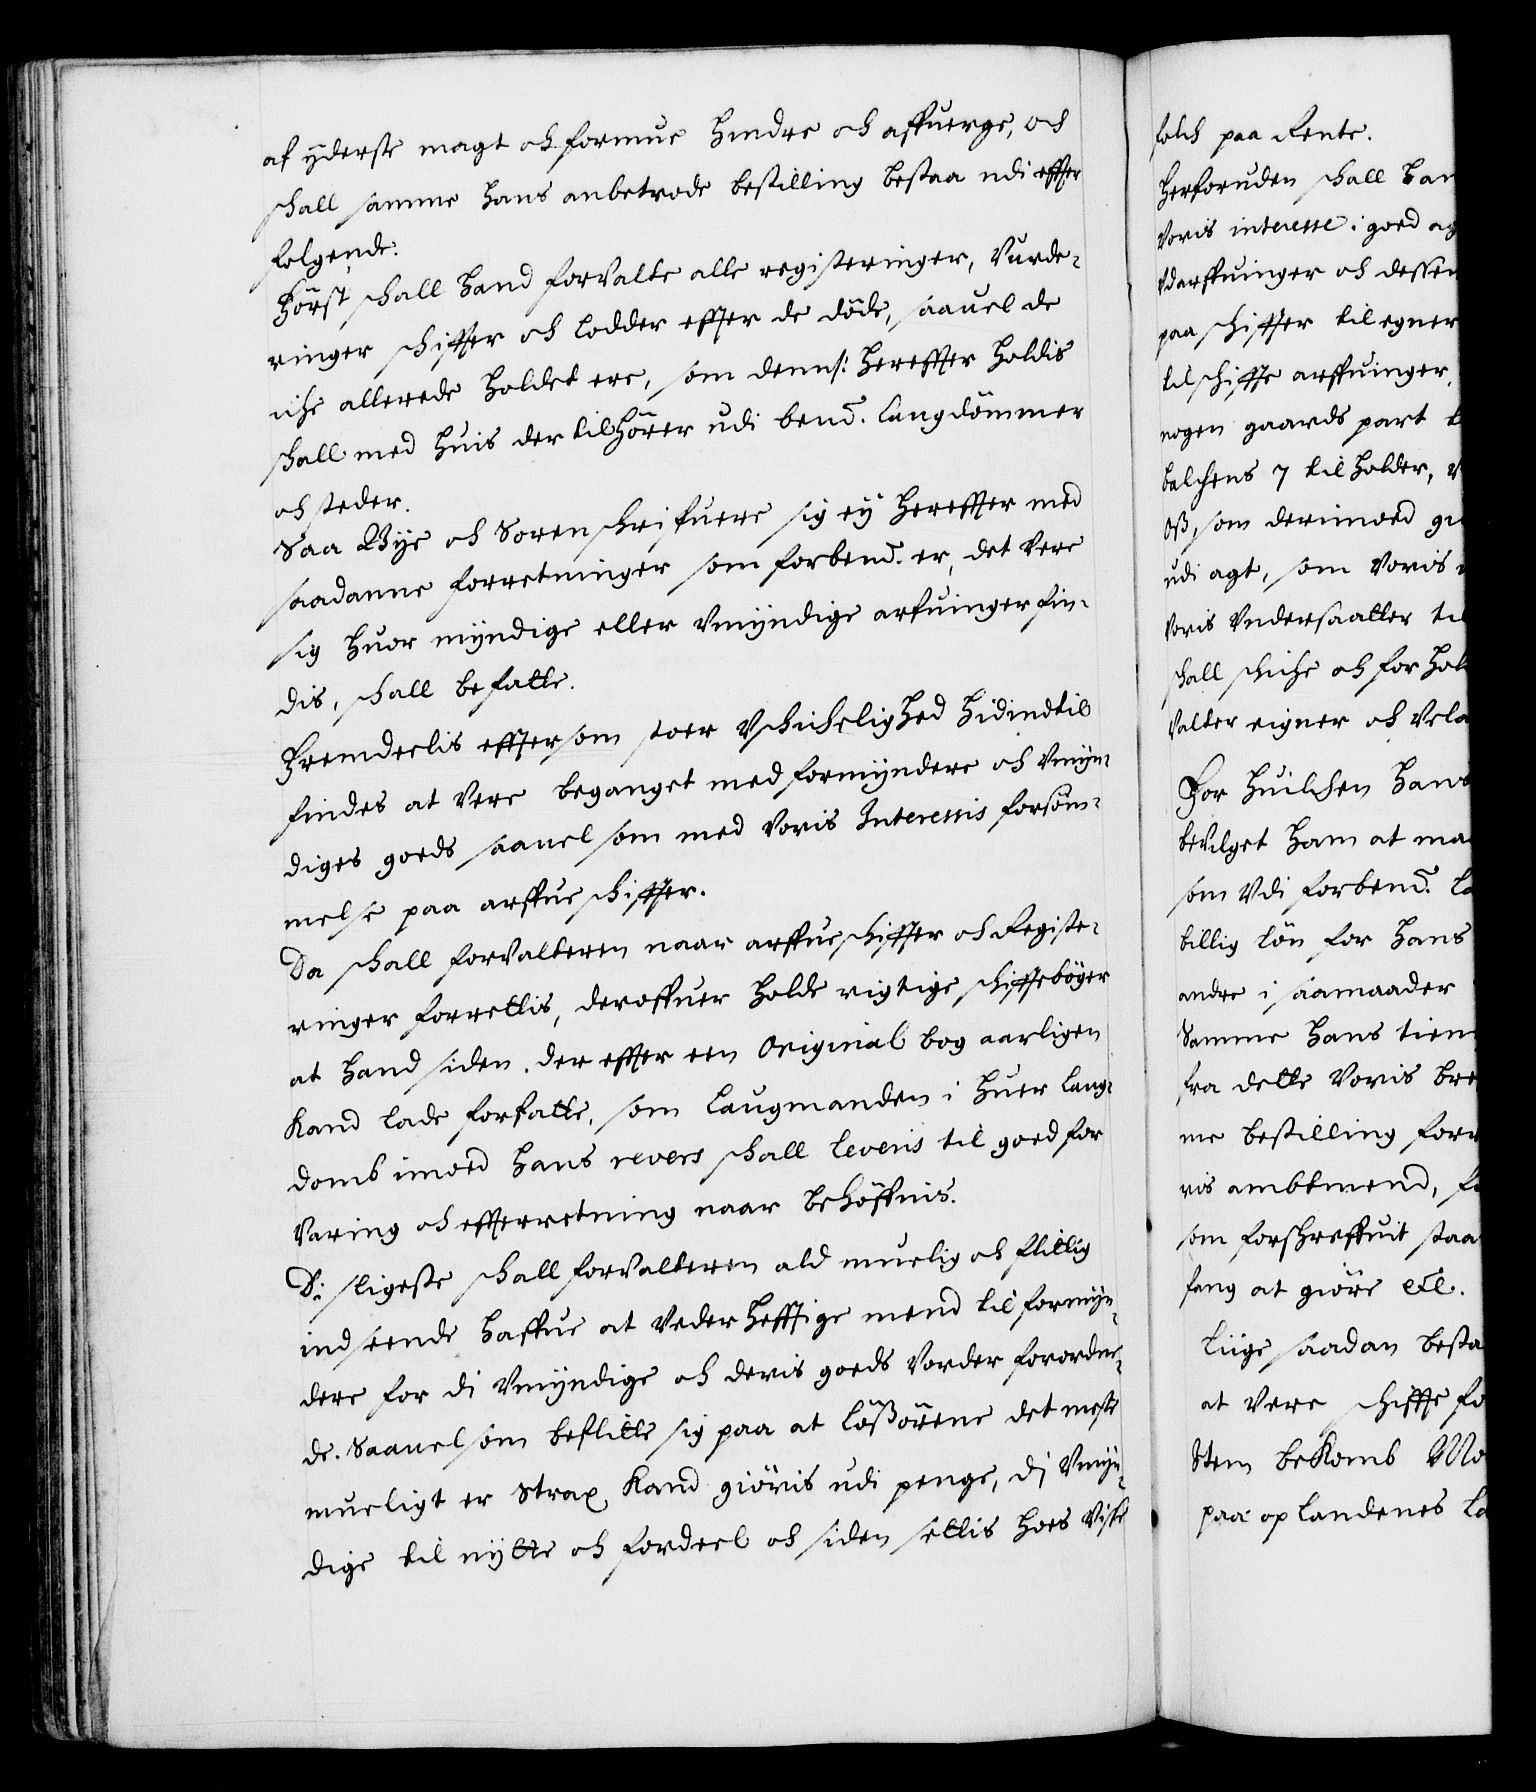 af yderste magt och formue hindre och affuerge, och
schall samme hans anbetrode bestilling bestaa udi effter
følgende.
Först schall hand forvalte alle registeringer, Vurde-
ringer schiffter och lodder effter de döde, saauel de
iche allerede holdet ere, som denns: hereffter holdis
schall med huis der tilhörer udi bemd. Laugdömmer
och steder.
Saa Bÿe och Sorenschrifuere sig eÿ hereffter med
saadanne forretninger som forbemd. er, det vere
sig huor mÿndige eller Vmÿndige arfuinger fin-
dis, schall befatte.
Fremdeelis efftersom stoer Vschichelighed hidindtil
findes at vere beganget med formÿndere och Vmÿn-
diges goeds saauelsom med Voris Interessis forsöm-
melse paa arffueschiffter.
Da schall forvalteren naar arffueschiffter och Registe-
ringer forrettis, deroffuer holde rigtige schiffteböger
at hand siden dereffter een Original bog aarligen
Kand lade forfatte, som Laugmanden i huer Laug-
domb imoed hans revers schall leveris til goed for
Varing och effterretning naar behöffuis.
Di sligeste schall forvalteren ald muelig och flittig
indseende haffue at Vederhefftige mend til formÿn-
dere for di Vmÿndige och deris goeds Vorder forordne-
de. Saauelsom beflitte sig paa at lößörene det meste
mueligt er Strax Kand giöris udi penge, di Vmÿn-
dige til nÿtte och fordeel och siden settis hoes Visse
folch paa Rente.
Herforuden schall han
Voris interesse i goed ag
Vdarffuinger och dessen
paa schiffter til egner
tilschiffte arffuinger,
nogen gaards part
balchens 7 tilholder,
Oß, som derimoed
udi agt, som Voris
Voris Vndersaatter til
schall schiche och forhol
Valter eigner och Vel
For huilchen hans
bevilget ham at ma
som Vdi forbemd. La
billig lön for hans
andre i saamaader
Samme hans tien
fra dette Voris bre
me bestilling forr
ris ambtmend,
som forschreffuit staa
fang at giöre etc.
Liige saadan besta
at vere schiffte fo
Stem bekomb Mo
paa oplandenes La